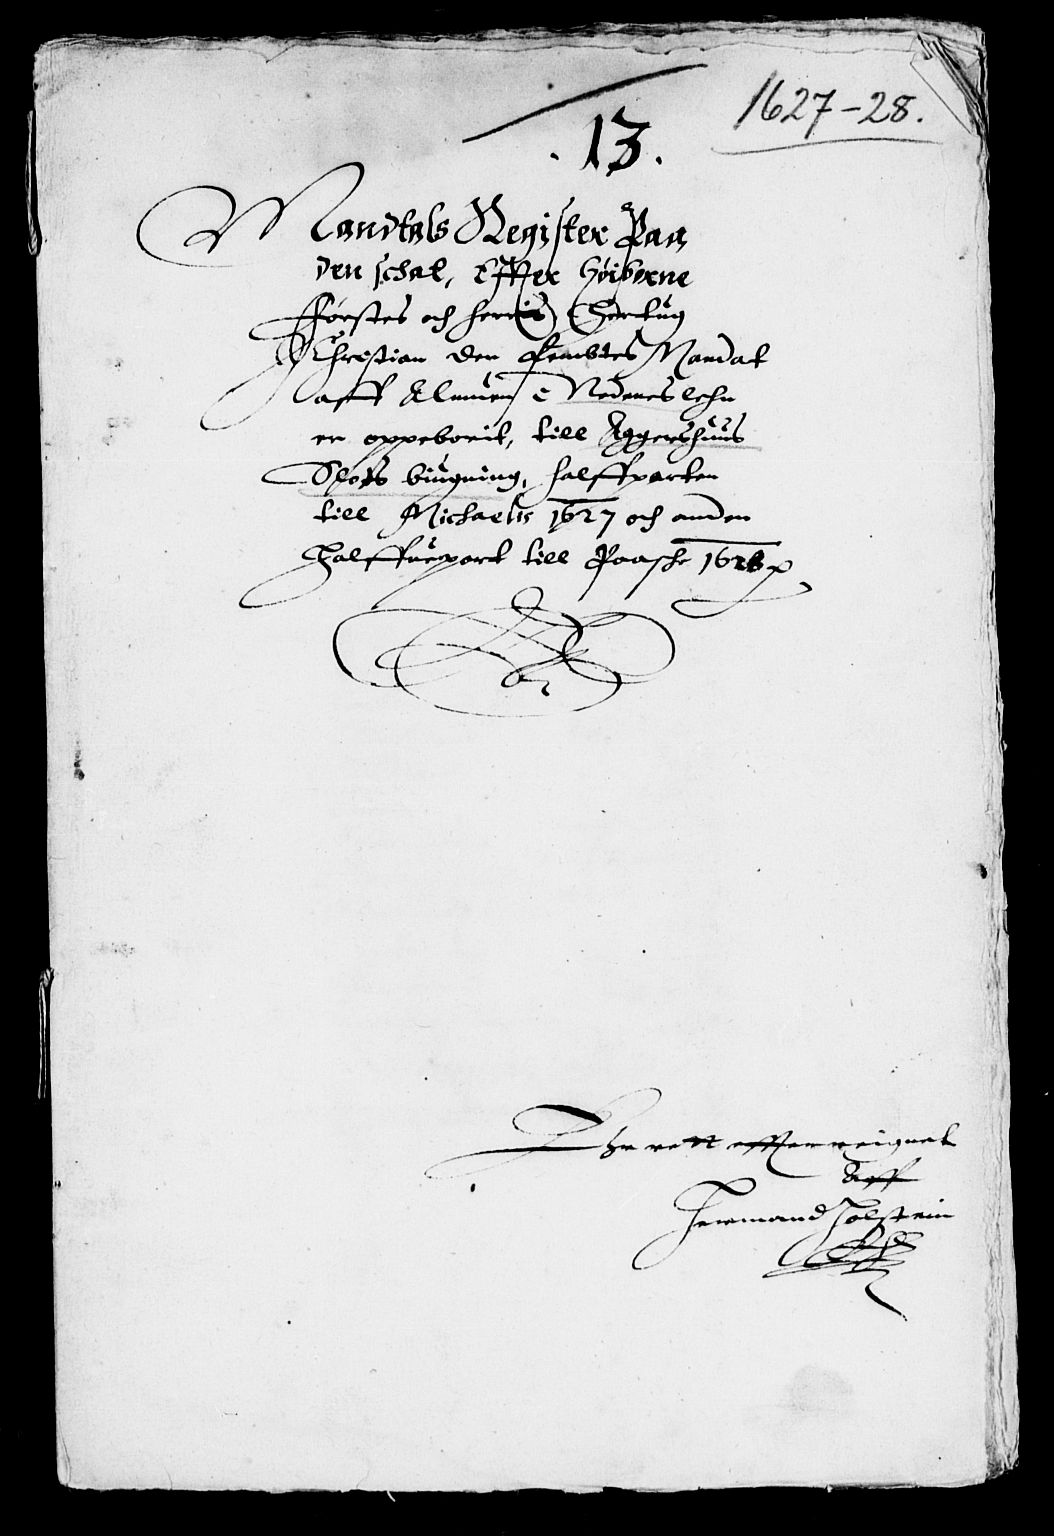 1627-28.
. 13 .
Mandtals Register Paa
den schat, Effter Høiborne
fførstes och herris Hertug
Christian den Fembtes Mandat
aff Almuen i Nedenes lehn
er oppeborit, till Aggershuus
Slots bůugning, halffparten
till Michaelis 1627 och anden
Halffueport till Paaske 1628 p
Hermand Holstein